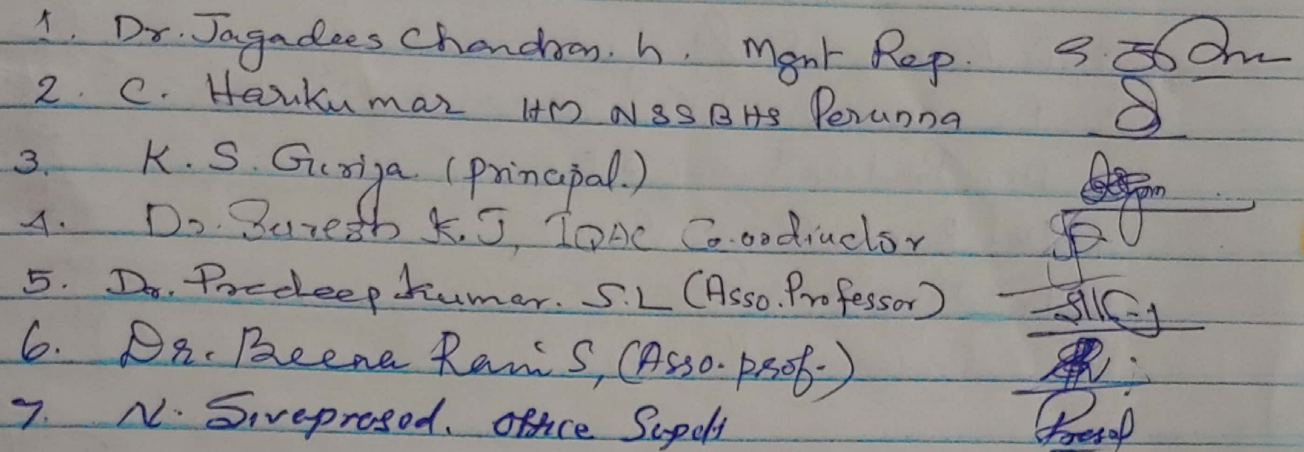 1. Dr. Jagadees Chandran. h. Mgnt Rep.
2. C. Harikumar HM NSSBHS Perunna
3. K. S. Girija (principal.)
4. Dr. Suresh K.J, IQAC Co-ordinator
5. Dr. Pradeep kumar. S.L (Asso. Professor)
6. Dr. Beena Rani S, (Asso. prof.)
7. N. Sivaprasad. Office Supdt Prasad